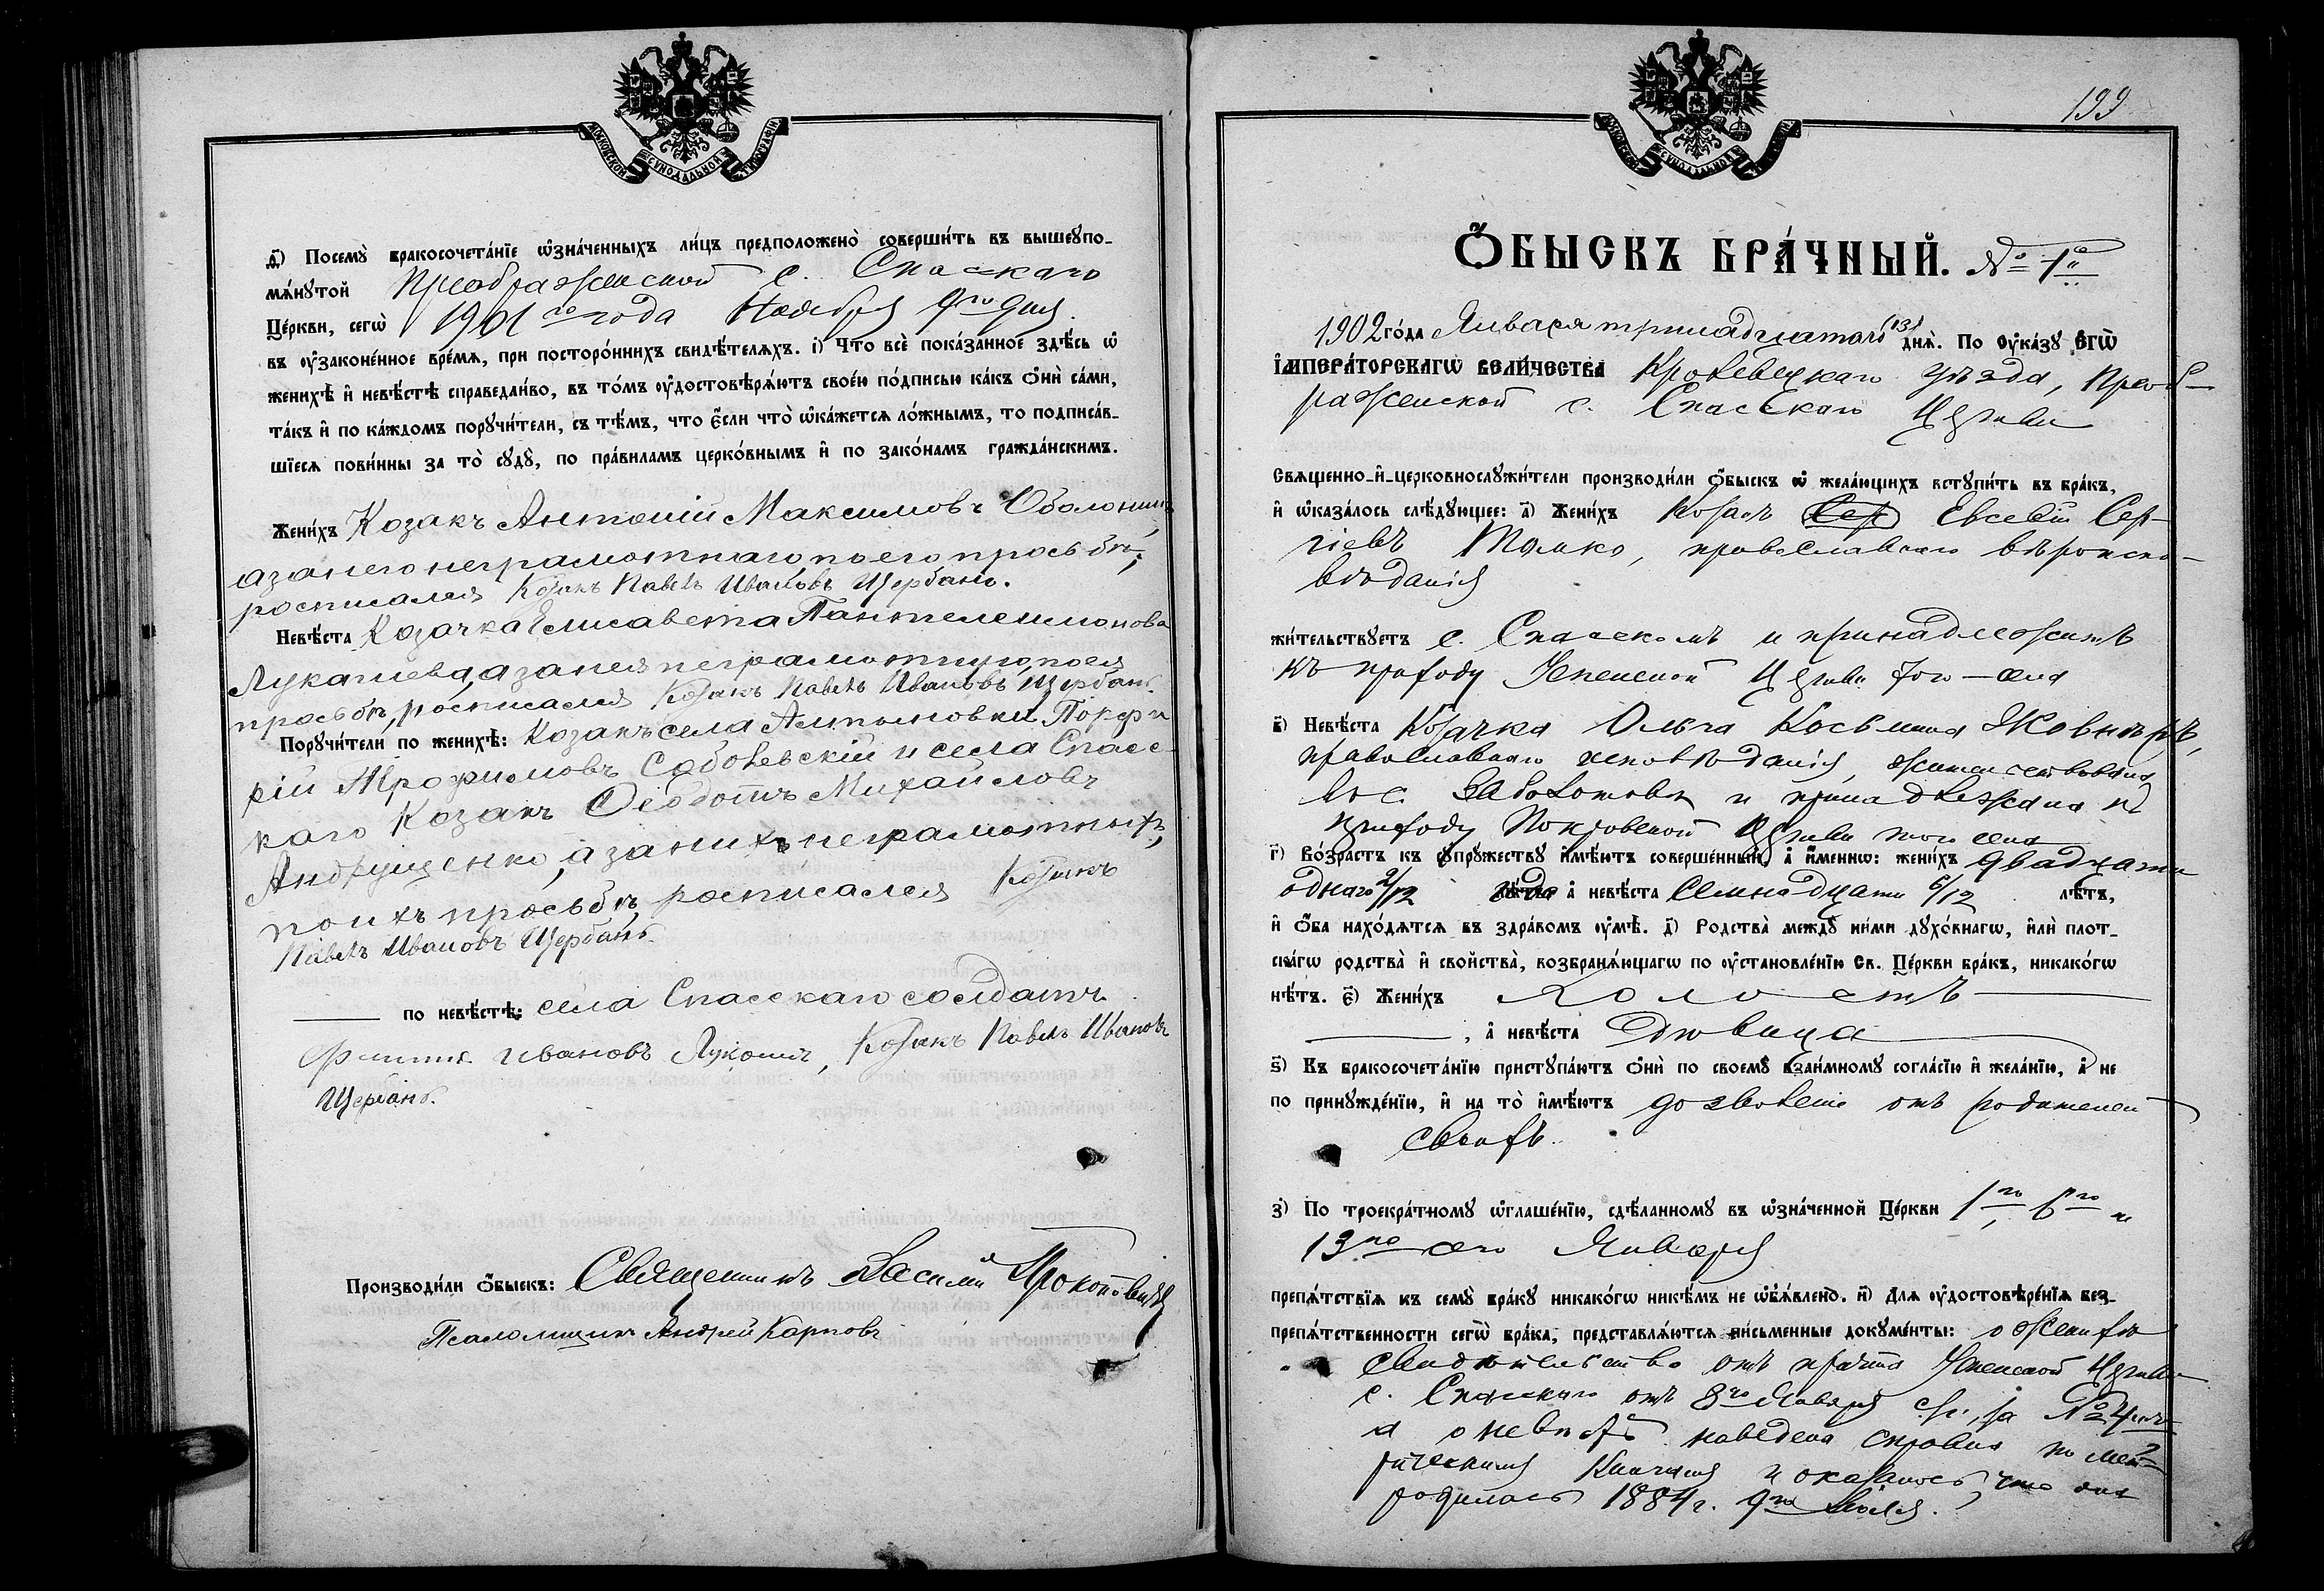 МОСКОВСКОЙ СУНОДАЛЬНОЙ ТИПОГРАФІИ
д҃) Посемꙋ̀ бракосочета́нїе ѡ҆зна́ченныхъ ли́цъ предположено̀ соверши́ть въ вышеꙋпо-
мѧ́нꙋтой Преображенской с. Спаскаго
Це́ркви, сегѡ̀ 1901го года Ноября 9го дня
въ ᲂу҆законе́нное вре́мѧ, при посторо́ннихъ свидѣ́телѧхъ. і҃) Что всѐ пока́занное здѣ́сь ѡ҆
женихѣ̀ и҆ невѣ́стѣ справедли́во, въ то́мъ ᲂу҆достовѣрѧ́ютъ свое́ю по́дписью ка́къ ѻ҆нѝ са́ми,
та́къ и҆ по ка́ждомъ порꙋчи́тели, съ тѣ́мъ, что е҆́сли что̀ ѡ҆ка́жетсѧ ло́жнымъ, то подписа́в-
шїесѧ пови́нны за то̀ сꙋдꙋ̀, по пра́виламъ церко́внымъ и҆ по зако́намъ гражда́нскимъ.
Жени́хъ Козакъ Антоній Максимовъ Оболонникъ,
а за него неграмотнаго, по его просьбѣ,
росписался Козакъ Павелъ Ивановъ Щербакъ.
Невѣ́ста Козачка Елисавета Пантелеимонова
Лукашева, а за нея неграмотную, по ея
просьбѣ, росписался Козакъ Павелъ Ивановъ Щербакъ.
Порꙋчи́тели по женихѣ̀: Козакъ села Алтыновки Порфи
рій Трофимовъ Соболевскій и села Спасс-
каго Козакъ Ѳеодотъ Михайловъ
Андрущенко, а за нихъ неграмотныхъ,
по ихъ просьбѣ, росписался Козакъ
Павелъ Ивановъ Щербакъ.
по невѣ́стѣ: села Спасскаго солдатъ
Филипъ Ивановъ Лукашъ, Козакъ Павелъ Ивановъ
Щербакъ.
Производи́ли ѻ҆́быскъ: Священникъ Василій Прокоповичъ
Псаломщикъ Андрей Карповъ
199
МОСКОВСКОЙ СУНОДАЛЬНОЙ ТИПОГРАФІИ
Ѻ҆БЫСКЪ БРА́ЧНЫЙ. № 1й
1902 го́да Января тринадцатаго (13) днѧ̀. По ᲂу҆ка́зꙋ Е҆гѡ̀
І҆мпера́торскагѡ вели́чества Кролевецкаго уѣзда, Преоб-
раженской с. Спасскаго Церкви
Свѧщенно-и҆-церковнослꙋжи́тели производи́ли ѻ҆́быскъ ѡ҆ жела́ющихъ встꙋпи́ть въ бра́къ,
и҆ ѡ҆каза́лось слѣ́дꙋющее: а҃) Жени́хъ Козакъ Сер Евсевій Сер-
гіевъ Томко, православнаго вѣроиспо-
вѣданія
жи́тельствꙋетъ с. Спасскомъ и принадлежитъ
къ приходу Успенской Церкви того-села
в҃) Невѣ́ста Козачка Ольга Косьмина Жовнѣръ,
православнаго исповѣданія, жительствовала
въ с. Заболотовѣ и принадлежала къ
приходу Покровской Церкви того села
г҃) Во́зрастъ къ сꙋпрꙋ́жествꙋ и҆мѣ́ютъ соверше́нный, а҆ и҆́меннѡ: жени́хъ двадцати
одного 2/12 а҆ невѣ́ста семнадцати 6/12 лѣ́тъ,
и҆ ѻ҆́ба нахо́дѧтсѧ въ здра́вомъ ᲂу҆мѣ̀. д҃) Родства̀ междꙋ̀ ни́ми дꙋхо́внагѡ, и҆лѝ плот-
ска́гѡ родства̀ и҆ сво́йства̀, возбранѧ́ющагѡ по ᲂу҆становле́нїю Св. Це́ркви бра́къ, никако́гѡ
нѣ́тъ. є҃) Жени́хъ Холостъ
, а҆ невѣ́ста Дѣвица
ѕ҃) Къ бракосочета́нїю пристꙋпа́ютъ ѻ҆нѝ по своемꙋ̀ взаи́мномꙋ согла́сїю и҆ жела́нїю, а҆ не
по принꙋжде́нїю, и҆ на то̀ и҆мѣ́ютъ дозволеніе отъ родителей
своихъ.
з҃) По троекра́тномꙋ ѡ҆глаше́нїю, сдѣ́ланномꙋ въ ѡ҆зна́ченной Це́ркви 1го, 6го и
13го сего Января
препѧ́тствїѧ къ семꙋ̀ бра́кꙋ никако́гѡ никѣ́мъ не ѡ҆бъѧ́влено̀. и҃) Для ᲂу҆достовѣре́нїѧ без-
препѧ́тственности сегѡ̀ бра́ка, представлѧ́ютсѧ пи́сьменные докꙋме́нты: о женихѣ
свидѣтельство отъ причта Успенской Церкви
с. Спасскаго отъ 8го Января с/г. за № 4мъ
а о невѣстѣ наведена справка по мет-
рическимъ Книгамъ и оказалось, что она
родилась 1884 г. 9го Іюля.